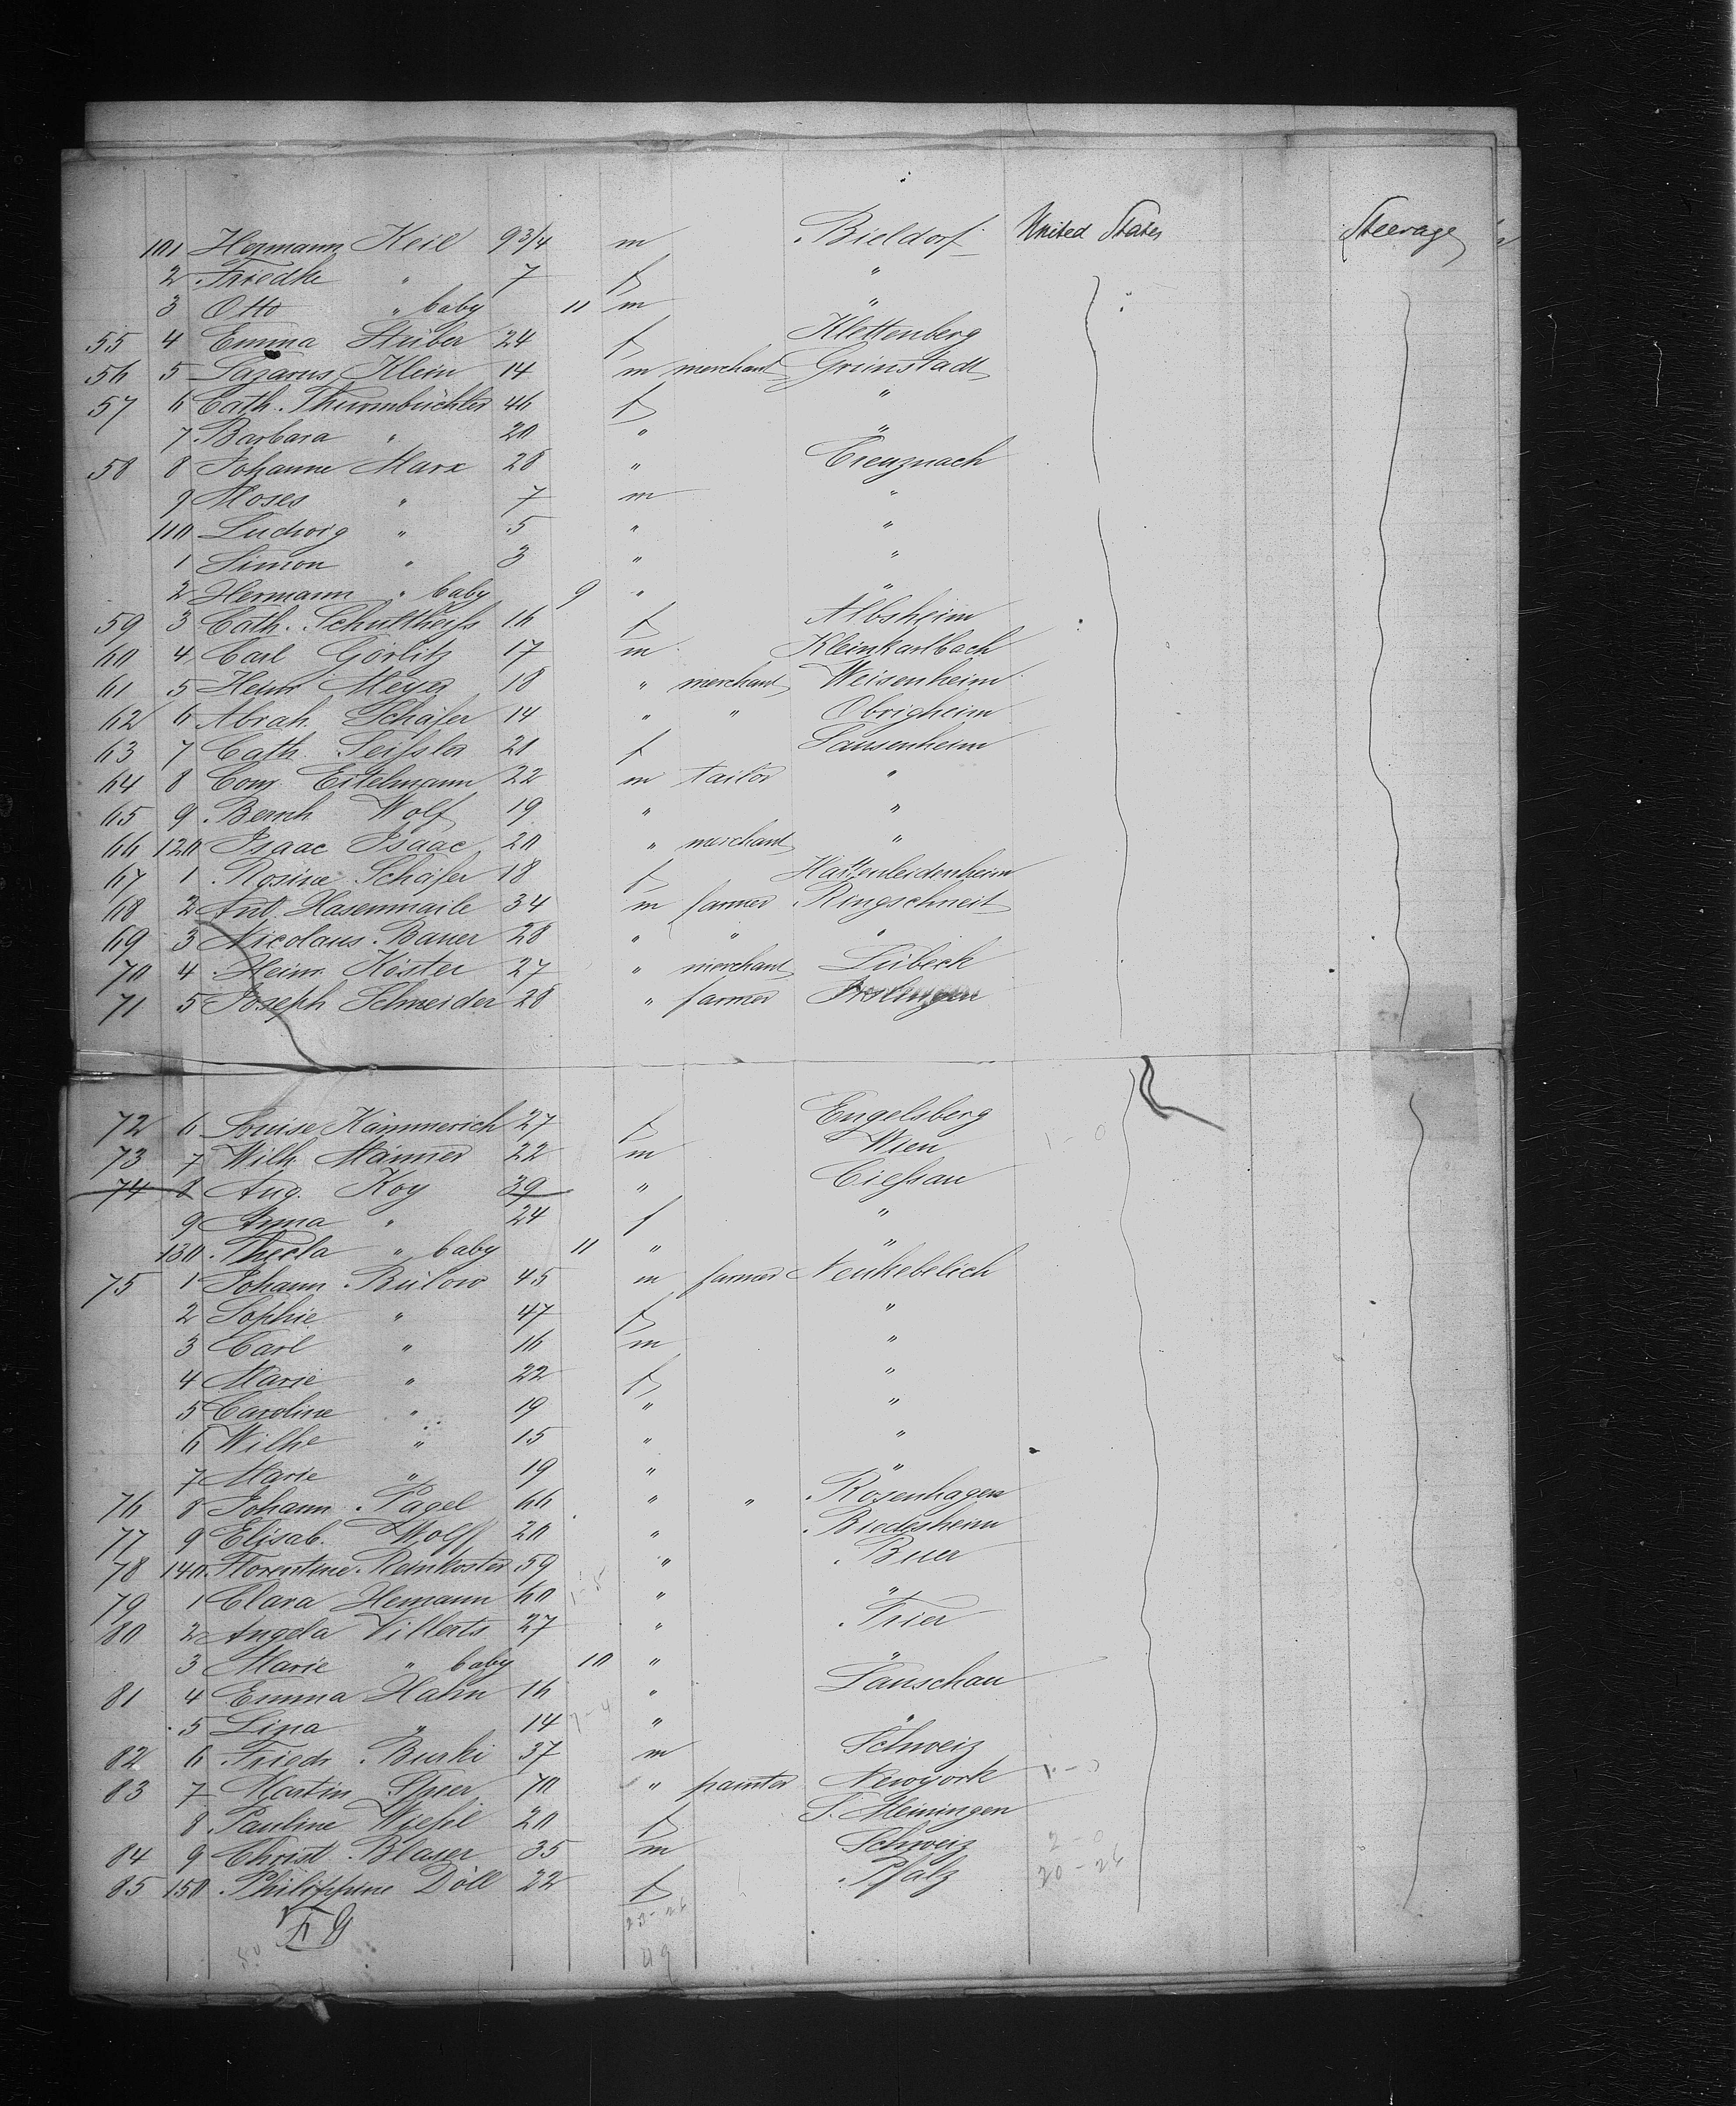 "
101 Hermann Keil 9 3/4 m Bieldorf United States Steerage
2 Friedke " 7 f "
3 Otto " baby 11 m "
55 4 Emma Stüber 24 f Klettenberg
56 5 Lazarus Klein 14 m merchant Grünstadt
57 6 Cath. Thurmbüchler 46 f "
7 Barbara " 20 " "
58 8 Johanne Marx 28 " Creuznach
9 Moses " 7 m "
110 Ludwig " 5 " "
1 Simon " 3 " "
2 Hermann " baby 9 " "
59 3 Cath. Schultheiss 16 f Albsheim
60 4 Carl Görlitz 17 m Kleinkarlbach
61 5 Heinr Meyer 18 " merchant Weisenheim
62 6 Abrah. Schäfer 14 " " Obrigheim
63 7 Cath. 21 f Sausenheim
64 8 Eitelmann 22 m tailor "
65 9 Bernh Wolf 19 " "
66 120 Isaac Isaac 20 " merchant "
67 1 Rosine Schäfer 18 f Hattenleidenheim
68 2 Ant. Hasenmaile 34 m farmer Ringschneit
69 3 Nicolaus Bauer 28 " " "
70 4 Heinr. Köster 27 " merchant Lübeck
71 5 Joseph Schneider 28 " farmer
72 6 Louise Kämmerich 27 f Engelsberg
73 7 Wilh. Männer 22 m Wien 1-0
74 8 Aug. Koy 39 " Ciessau
9 Anna " 24 f "
130 Thecla " baby 11 " "
75 1 Johann Bülow 45 m farmer Neuhebelich
2 Sophie " 47 f "
3 Carl " 16 m "
4 Marie " 22 f "
5 Caroline " 19 " "
6 Wilhe " 15 " "
7 Marie " 19 " "
76 8 Johann Pagel 66 " " Rosenhagen
77 9 Elisab. Wolff 20 " Biedesheim
78 140 Florentine Renkoster 59 " Buer
79 1 Clara Hemann 60 1-5 " "
80 2 Angela Villerts 27 " Trier
3 Marie " baby 10 " "
81 4 Emma Hahn 16 " Lauschau
5 Lina " 14 " "
82 6 Friedr. Burki 37 m Schweiz
83 7 Martin 70 " painter Newyork
8 Pauline 20 f S. Meiningen
84 9 Christ. Blaser 35 m Schweiz 2-0
85 150 Philippine Döll 22 f Pfalz 20-26
23-26
50 49